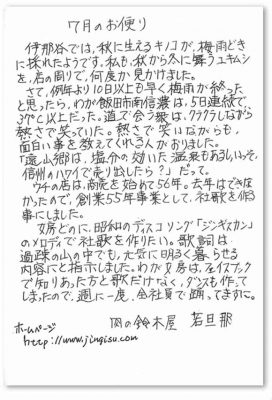 7月のお便り
伊那谷では、秋に生えるキノコが、梅雨どき
に採れたようです。私も、秋から冬に舞うユキムシ
を、店の周りで、何度か見かけました。
さて、例年より10日以上も早く梅雨が終った
と思ったら、わが飯田市南信濃は、5日連続で、
37℃以上だった。道で会う衆は、クラクラしながら
熱さで笑っていた。熱さで笑いながらも、
面白い事を教えてくれる人がおりました。
「遠山郷は、塩分の効いた温泉もあるしいっそ、
信州のハワイで売り出したら?」だって。
ウチの店は、商売を始めて56年。去年はできな
かったので、創業55年事業として、社歌を作る
事にしました。
女房どのに、昭和のディスコソング「ジンギスカン」
のメロディで社歌を作りたい。歌詞は
過疎の山の中でも、元気に明るく暮らせる
内容にと指示しました。わが女房は、フェイスブック
で知りあった方と歌だけでなく、ダンスも作って
しまったので、週に一度、全社員で踊ってますに。
肉の鈴木屋 若旦那
ホームページ
http://www.jingisu.com